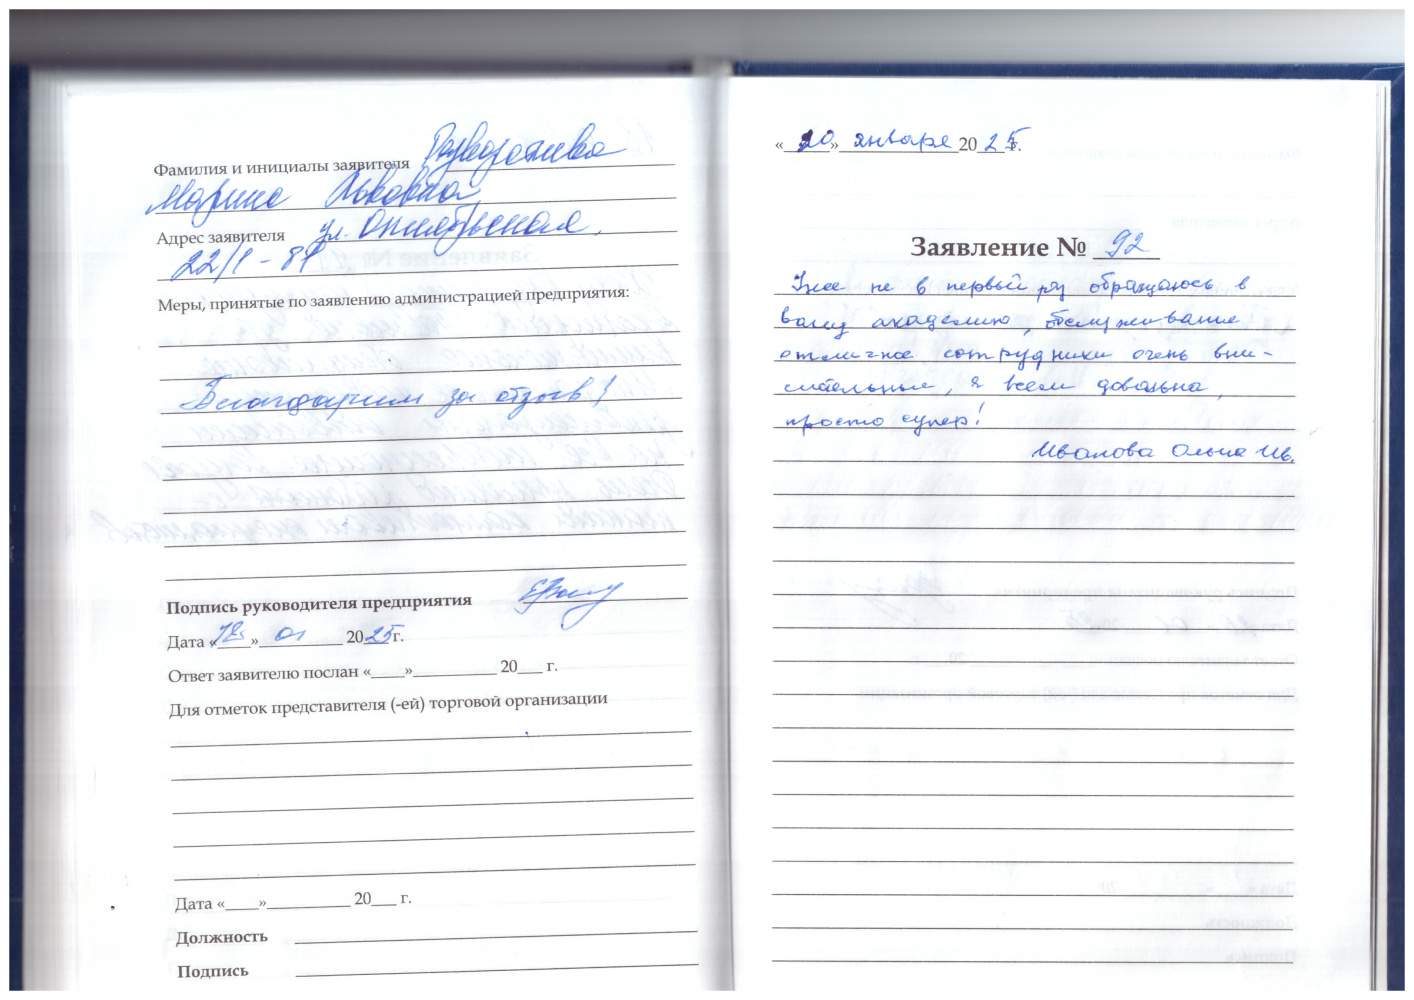 Фамилия и инициалы заявителя
Марина Львовна
Адрес заявителя ул. Октябрьская,
22/1 - 81
Меры, принятые по заявлению администрацией предприятия:
Благодарим за отзыв!
Подпись руководителя предприятия
Дата «18» 01 2025г.
Ответ заявителю послан «____»__________ 20___ г.
Для отметок представителя (-ей) торговой организации
Дата «____»__________ 20___ г.
Должность
Подпись
«20» января 2025г.
Заявление № 92
Уже не в первый раз обращаюсь в
вашу академию, обслуживание
отличное сотрудники очень вни-
мательные, я всем довольна,
просто супер!
Иванова Ольга Ив.